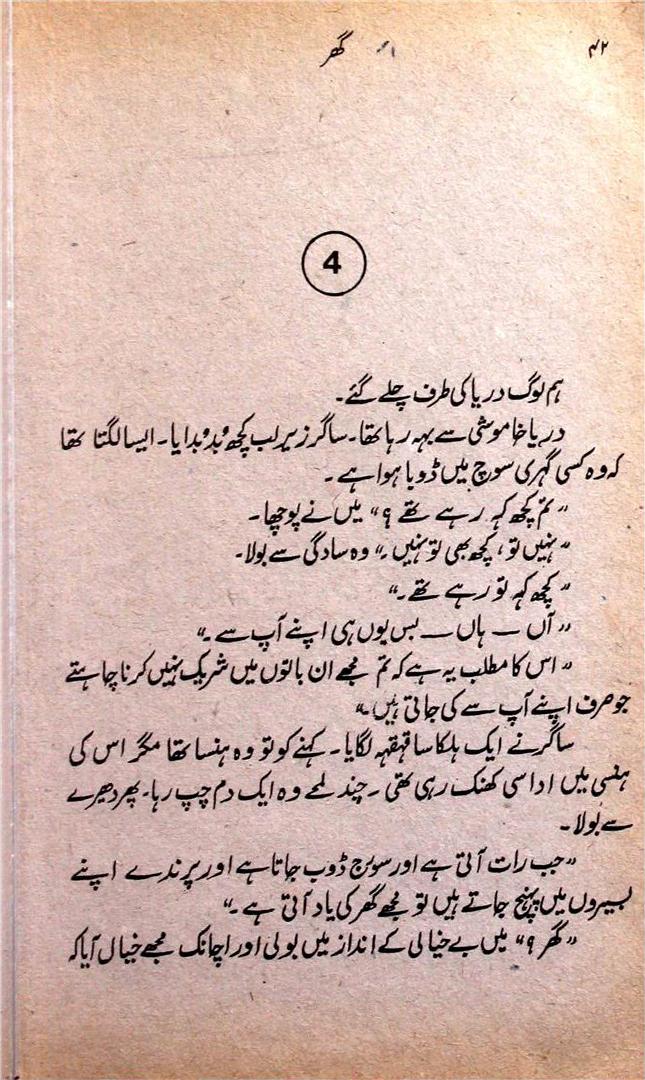 ۴۲
گھر
4
ہم لوگ دریا کی طرف چلے گئے۔
دریا خاموشی سے بہہ رہا تھا۔ ساگر زیرِ لب کچھ بُدبُدایا۔ ایسا لگتا تھا
کہ وہ کسی گہری سوچ میں ڈوبا ہوا ہے۔
”تم کچھ کہہ رہے تھے؟“ میں نے پوچھا۔
”نہیں تو، کچھ بھی تو نہیں۔“ وہ سادگی سے بولا۔
”کچھ کہہ تو رہے تھے۔“
”آں — ہاں — بس یوں ہی اپنے آپ سے۔“
”اس کا مطلب یہ ہے کہ تم مجھے ان باتوں میں شریک نہیں کرنا چاہتے
جو صرف اپنے آپ سے کی جاتی ہیں۔“
ساگر نے ایک ہلکا سا قہقہہ لگایا۔ کہنے کو تو وہ ہنسا تھا مگر اس کی
ہنسی میں اداسی کھنک رہی تھی۔ چند لمحے وہ ایک دم چپ رہا۔ پھر دھیرے
سے بولا۔
”جب رات آتی ہے اور سورج ڈوب جاتا ہے اور پرندے اپنے
بسیروں میں پہنچ جاتے ہیں تو مجھے گھر کی یاد آتی ہے۔“
”گھر؟“ میں بے خیالی کے انداز میں بولی اور اچانک مجھے خیال آیا کہ